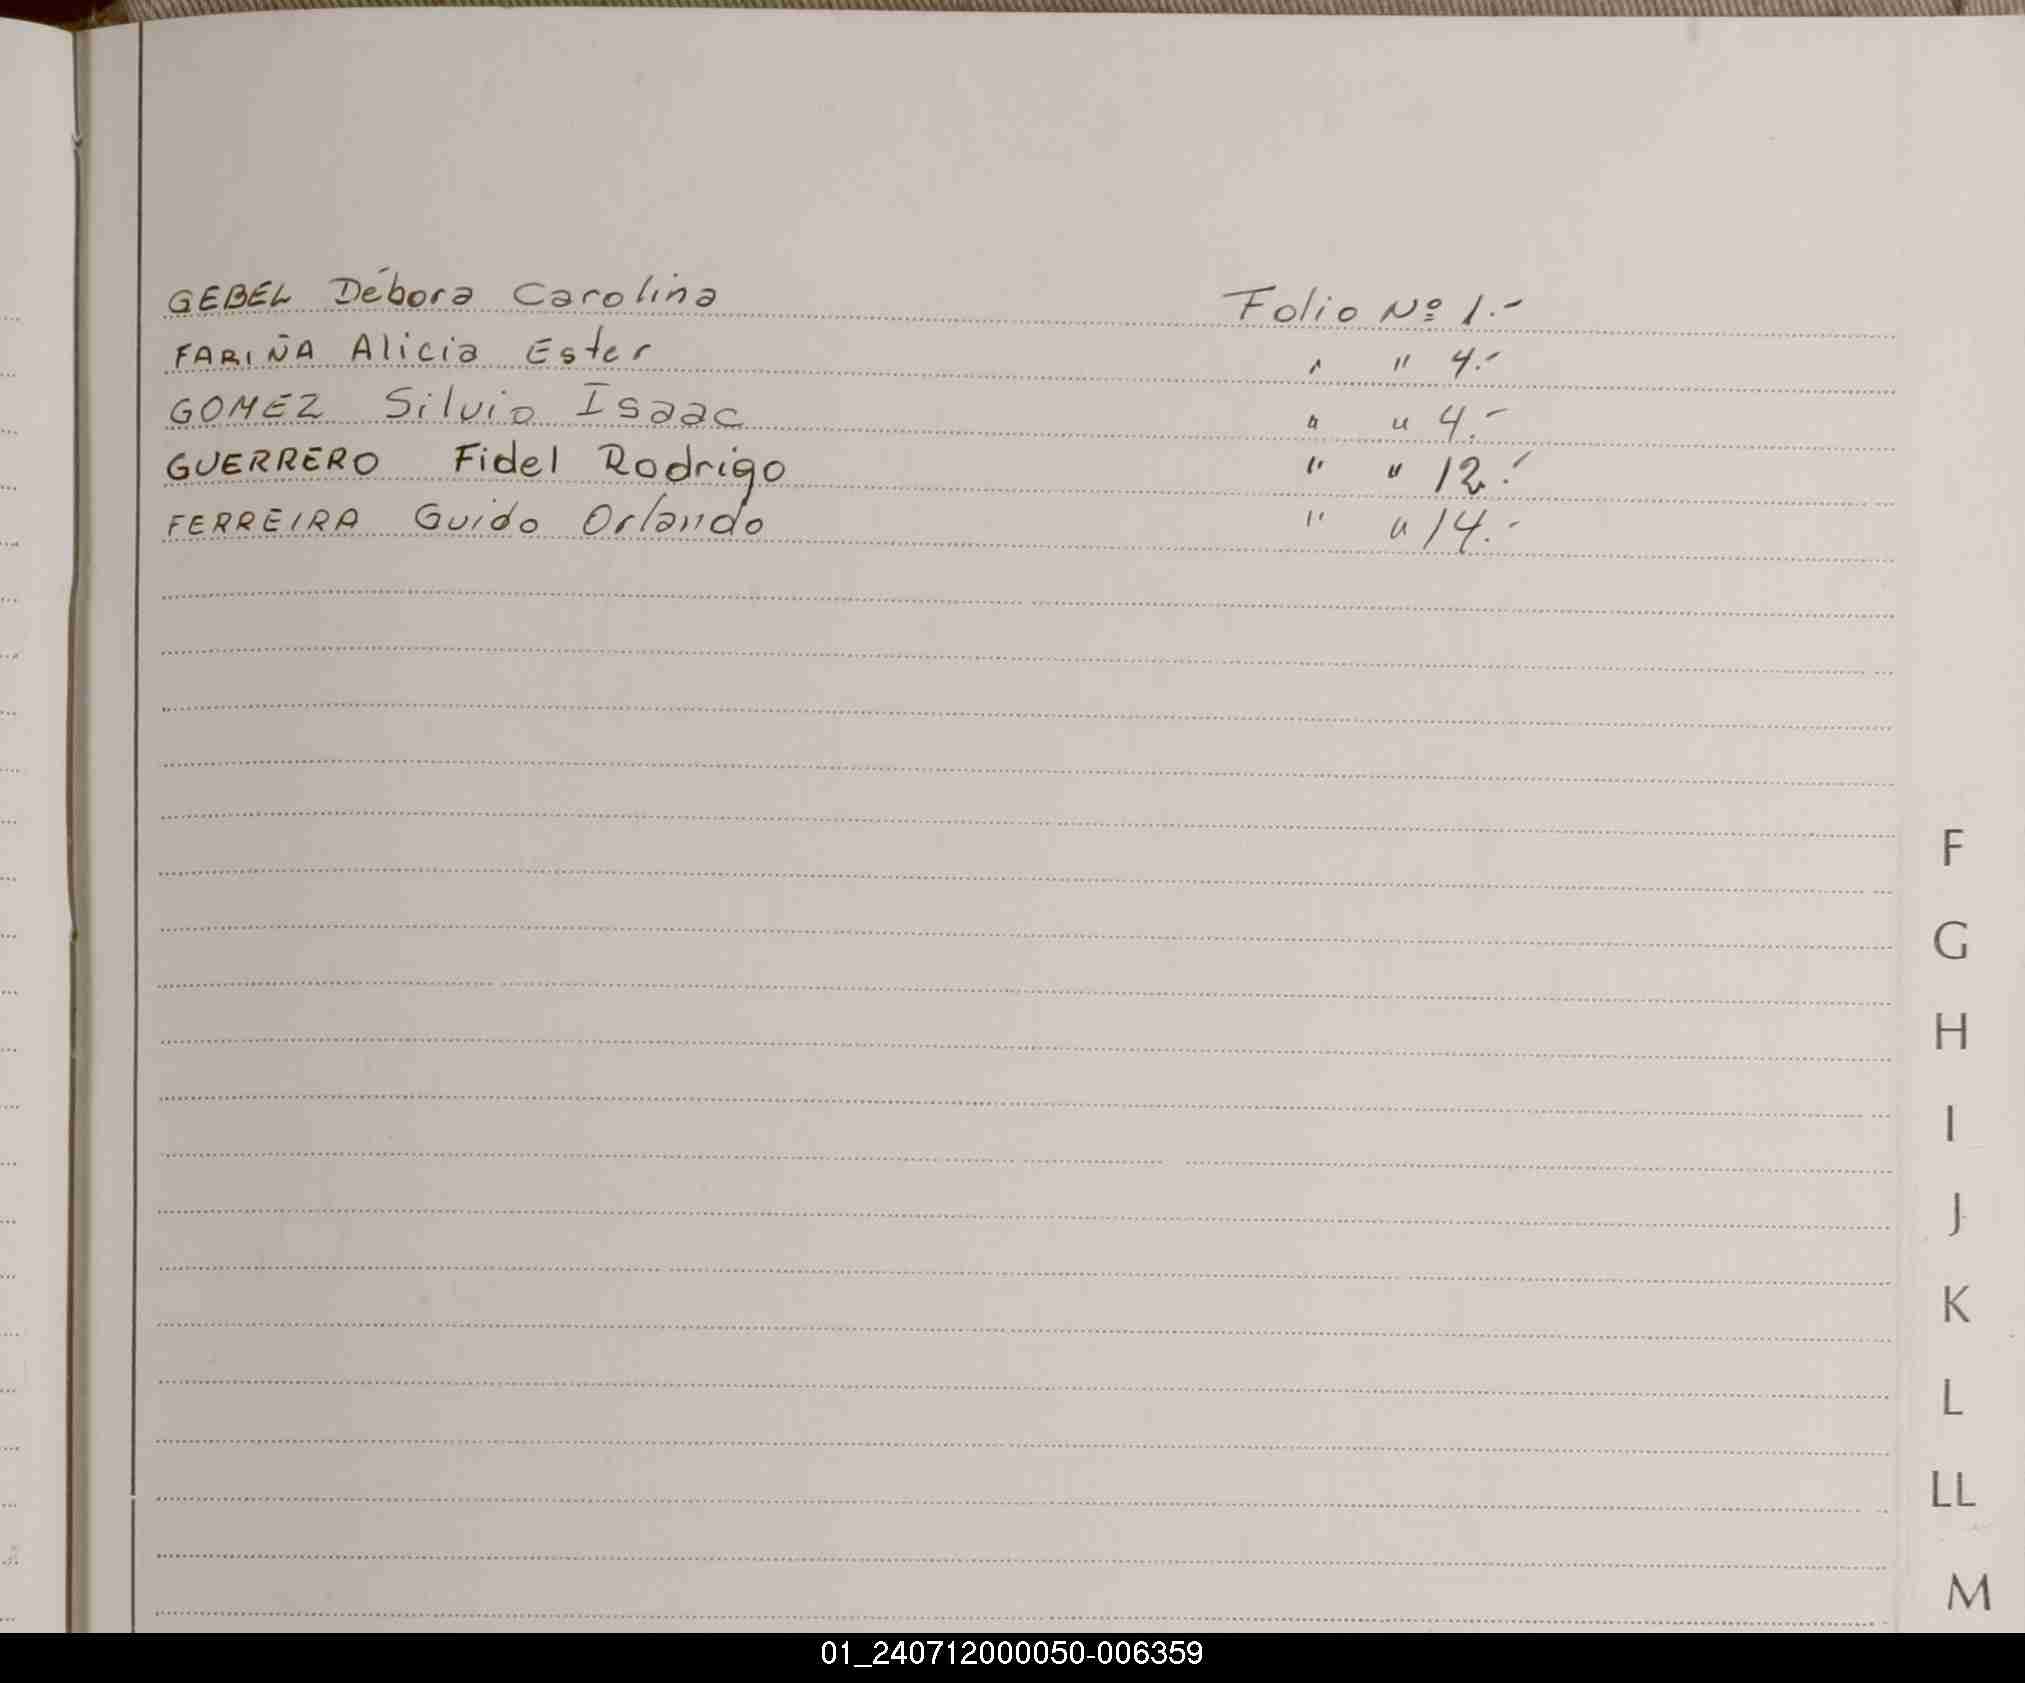 GEBEL Débora Carolina Folio Nº 1.-
FARIÑA Alicia Ester " " 4.-
GOMEZ Silvio Isaac " " 4.-
GUERRERO Fidel Rodrigo " " 12.-
FERREIRA Guido Orlando " " 14.-
F
G
H
I
J
K
L
LL
M
01_240712000050-006359